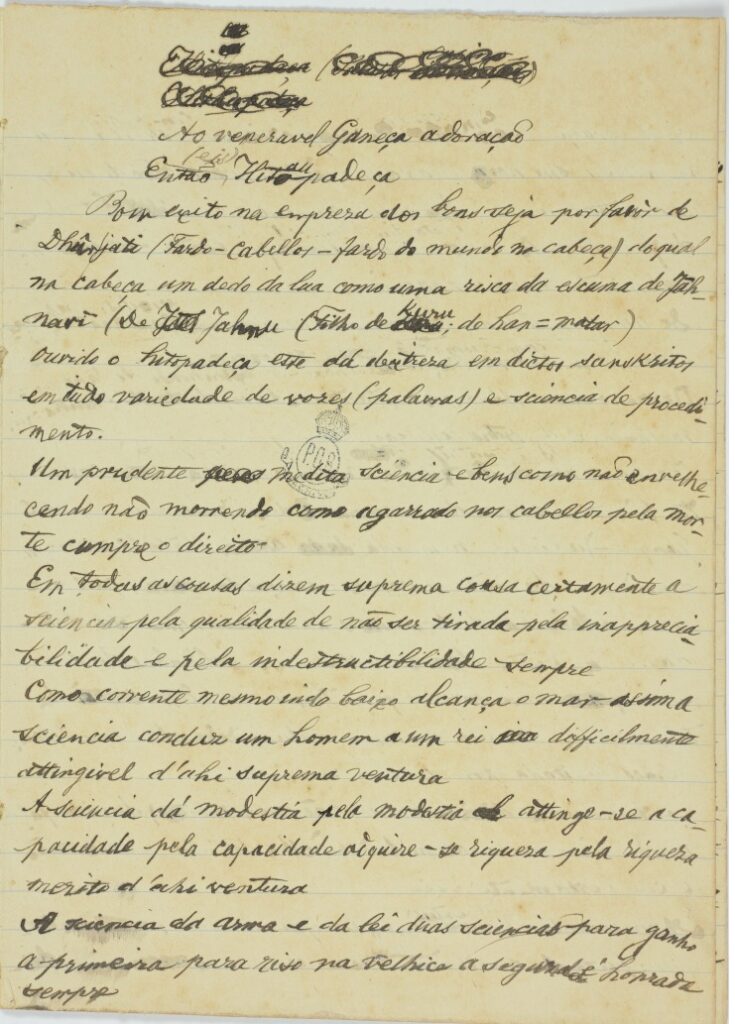 Ao veneravel Ganeça adoração
Então (eis) Hitopadeça
Bom exito na empreza dos bons seja por favôr de
Dhûrjati (Fardo-cabellos-fardo do mundo na cabeça) do qual
na cabeça um dedo da lua como uma risca da escuma de Jah-
navi (De Jahnu (Filho de Kuru; de han = matar)
Ouvido o hitopadeça este dá destreza em dictos sanskritos
em tudo variedade de vozes (palavras) e sciencia de procedi-
mento.
Um prudente medita sciencia e bens como não envelhe-
cendo não morrendo como agarrado nos cabellos pela mor-
te cumpre o direito
Em todas as cousas dizem suprema cousa certamente a
sciencia pela qualidade de não ser tirada pela inapprecia-
bilidade e pela indestructibilidade sempre
Como corrente mesmo indo baixo alcança o mar assim a
sciencia conduz um homem a um rei difficilmente
attingivel d'ahi suprema ventura
A sciencia dá modestia pela modestia attinge-se a ca-
pacidade pela capacidade adquire-se riqueza pela riqueza
merito d'ahi ventura
A sciencia da arma e da lei duas sciencias para ganho
a primeira para riso na velhice a segunda é honrada
sempre